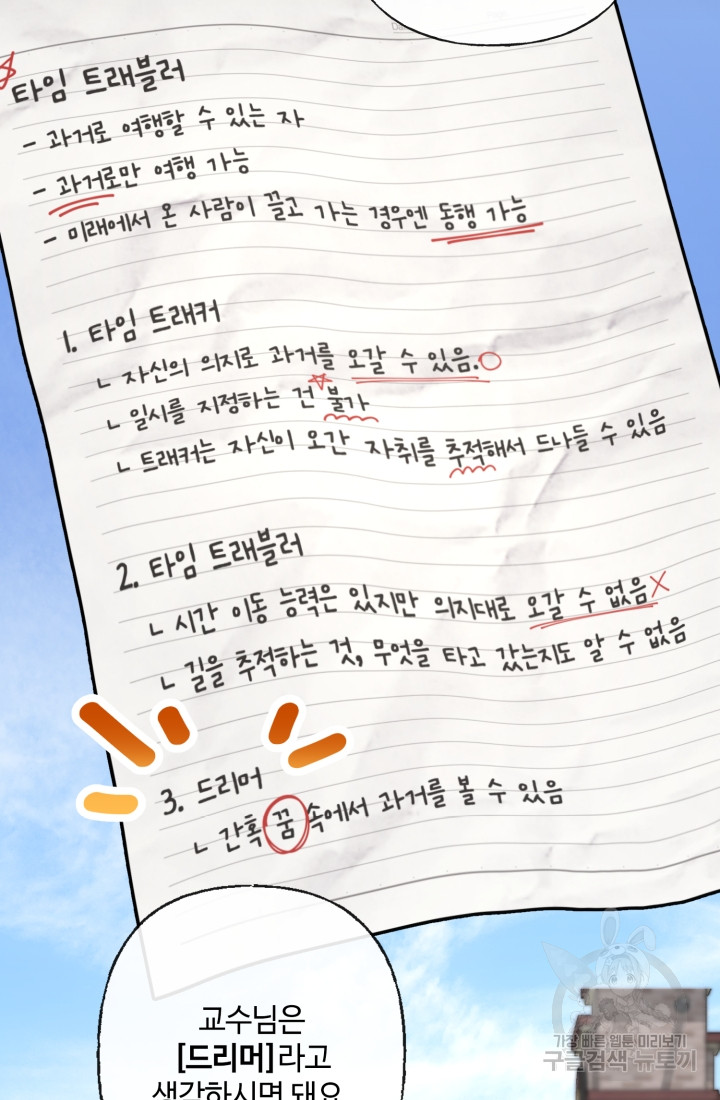 타임 트래블러
- 과거로 여행할 수 있는 자
- 과거로만 여행 가능
- 미래에서 온 사람이 끌고 가는 경우엔 동행 가능
1. 타임 트래커
ㄴ 자신의 의지로 과거를 오갈 수 있음.
ㄴ 일시를 지정하는 건 불가
ㄴ 트래커는 자신이 오간 자취를 추적해서 드나들 수 있음
2. 타임 트래블러
ㄴ 시간 이동 능력은 있지만 의지대로 오갈 수 없음
ㄴ 길을 추적하는 것, 무엇을 타고 갔는지도 알 수 없음
3. 드리머
ㄴ 간혹 꿈 속에서 과거를 볼 수 있음
교수님은
[드리머]라고
생각하시면 돼요
가장 빠른 웹툰 미리보기
구글검색 뉴토끼